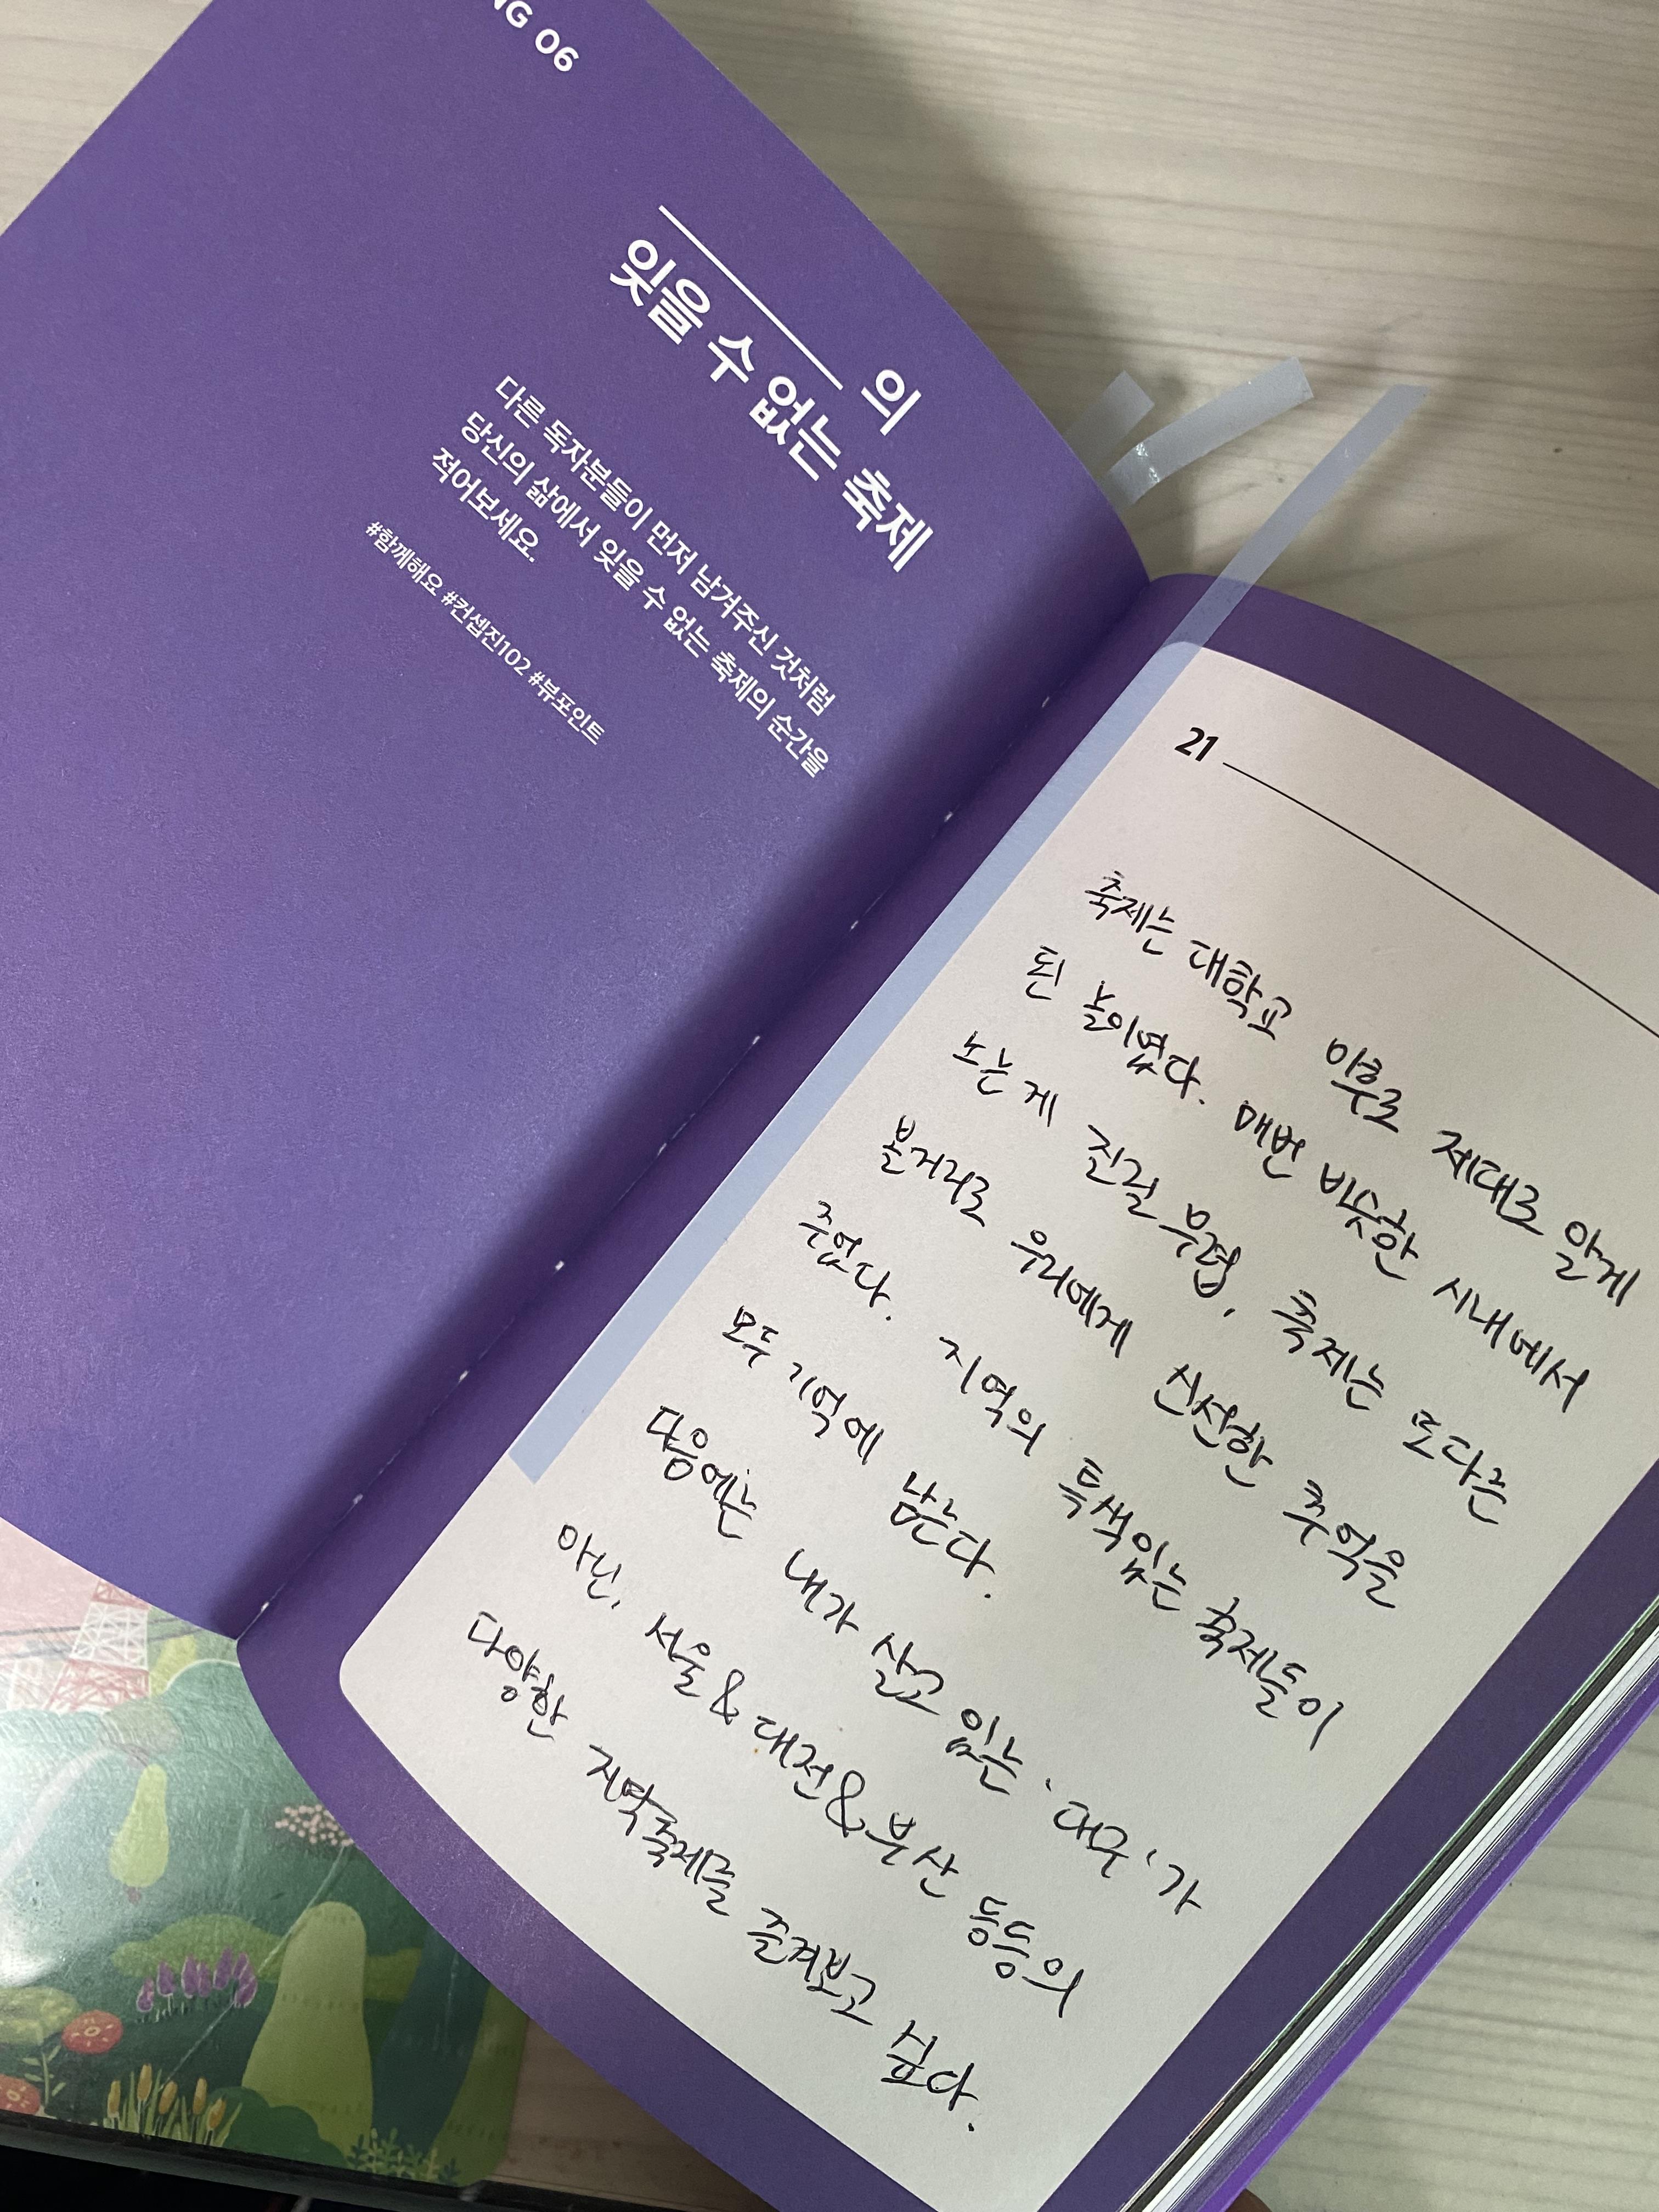 NG 06
의
잊을 수 없는 축제
다른 독자분들이 먼저 남겨주신 것처럼
당신의 삶에서 잊을 수 없는 축제의 순간을
적어보세요.
#함께해요 #컨셉진102 #뷰포인트
21
축제는 대학교 이후로 제대로 알게
된 놀이였다. 매번 비슷한 시내에서
노는 게 질릴 무렵, 축제는 또다른
볼거리로 우리에게 신선한 추억을
주었다. 지역의 특색있는 축제들이
모두 기억에 남는다.
다음에는 내가 살고 있는 '대구'가
아닌, 서울&대전&부산 등등의
다양한 지역축제를 즐겨보고 싶다.